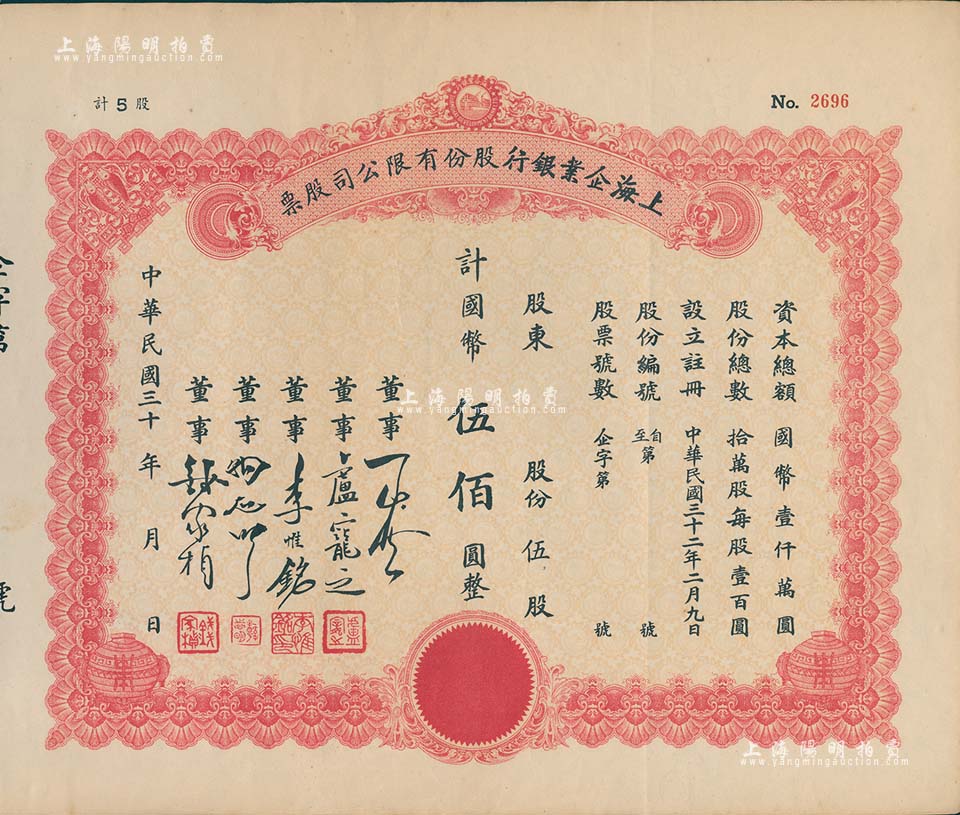 上海陽明拍賣
www.yangmingauction.com
計 5 股
No. 2696
上海企業銀行股份有限公司股票
資本總額 國幣壹仟萬圓
股份總數 拾萬股每股壹百圓
設立註冊 中華民國三十二年二月九日
股份編號 自至第 號
股票號數 企字第 號
股東 股份 伍 股
計國幣 伍佰 圓整
董事
董事 盧寵之
董事 李惟銘
董事
董事 錢家楨
中華民國三十 年 月 日
上海陽明拍賣
www.yangmingauction.com
上海陽明拍賣
www.yangmingauction.com